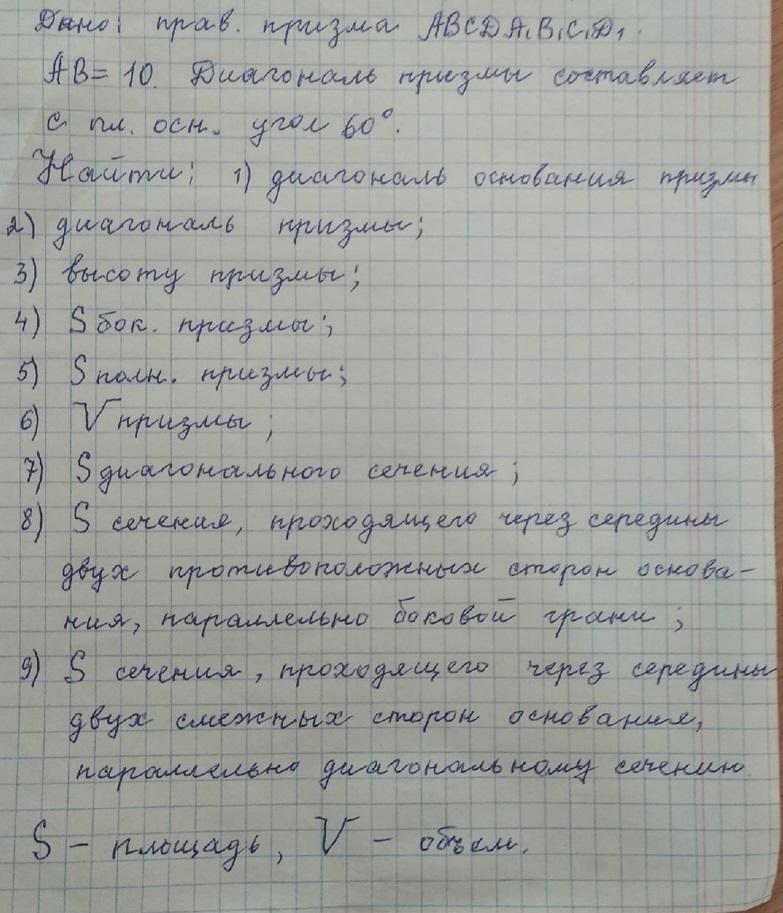 Дано: прав. призма ABCDA₁B₁C₁D₁.
AB = 10. Диагональ призмы составляет
с пл. осн. угол 60°.
Найти: 1) диагональ основания призмы
2) диагональ призмы;
3) высоту призмы;
4) S бок. призмы;
5) S полн. призмы;
6) V призмы;
7) S диагонального сечения;
8) S сечения, проходящего через середины
двух противоположных сторон основа-
ния, параллельно боковой грани;
9) S сечения, проходящего через середины
двух смежных сторон основания,
параллельно диагональному сечению.
S – площадь, V – объем.